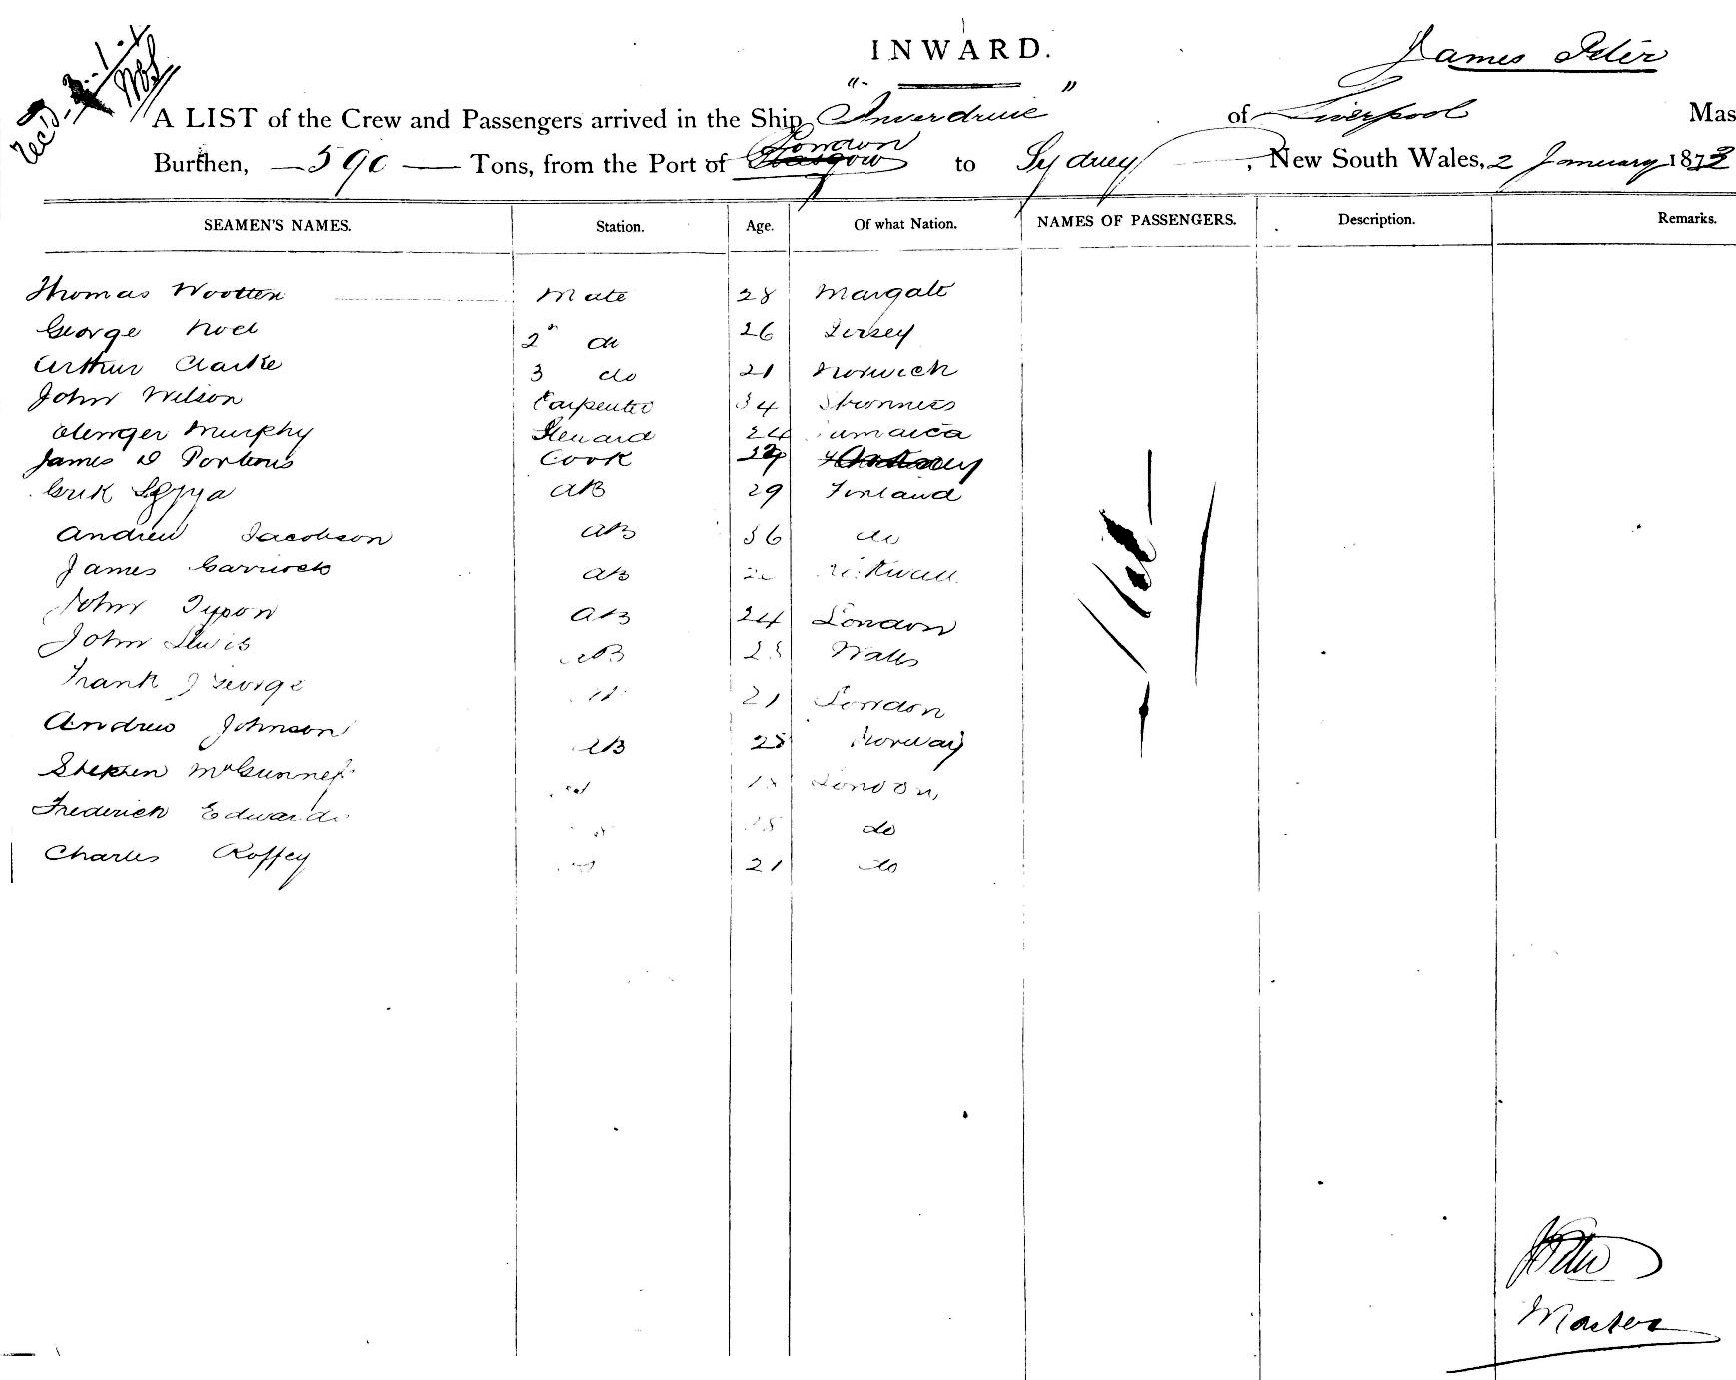 INWARD.
James Peter
A LIST of the Crew and Passengers arrived in the Ship "Inverdruie" of Liverpool Mas
Burthen, 590 Tons, from the Port of London to Sydney, New South Wales, 2 January 1873
SEAMEN'S NAMES. Station. Age. Of what Nation. NAMES OF PASSENGERS. Description. Remarks.
Thomas Wootten Mate 28 Margate
George Noel 2" do 26 Jersey
Arthur Clarke 3 do 21 Norwich
John Wilson Carpenter 34 Stromness
Murphy Steward 24 Jamaica
James D Porteous Cook
Erik AB 29 Finland
Andrew Jacobson AB 36 do
James Garrioch AB Kirkwall
John Tyson AB 24 London
John Lewis AB 28 Wales
Frank J George 21 London
Andrew Johnson AB 28 Norway
Stephen London,
Frederick Edwards 18 do
Charles Roffey 21 do
Nil
J Peter
Master